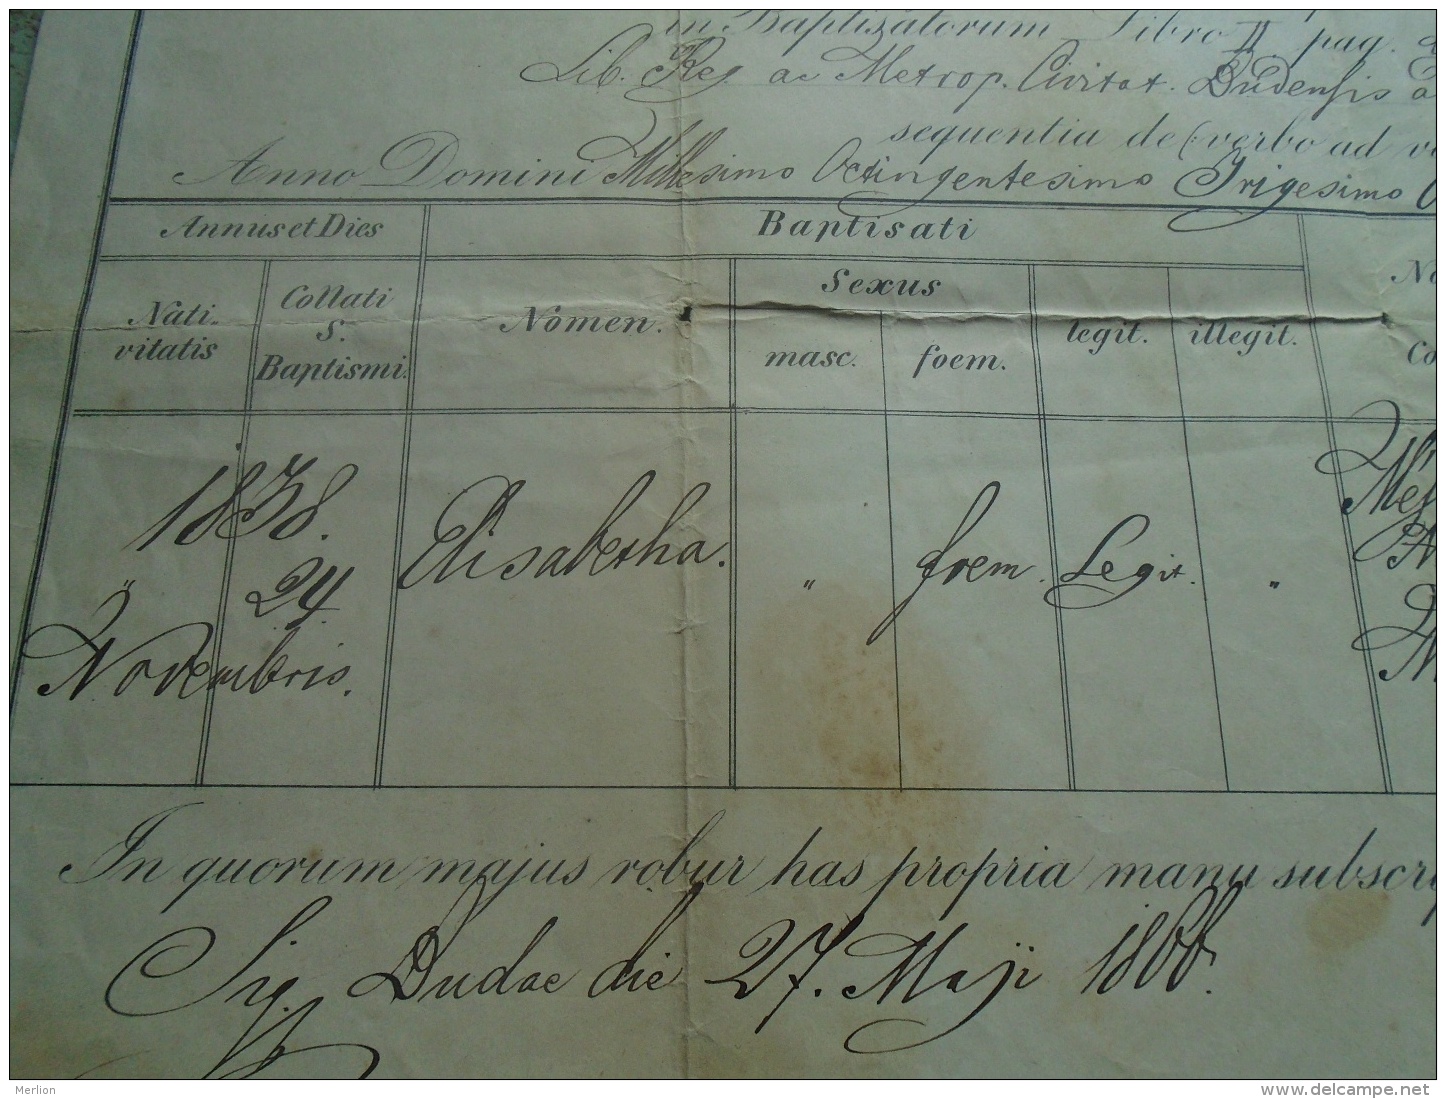 in Baptizatorum Libro II. pag.
Lib. Reg ac Metrop. Civitat. Budensis a
sequentia de verbo ad v
Anno Domini Millesimo Octingentesimo Trigesimo O
Annus et Dies
Baptisati
Nati-
vitatis
Collati
S.
Baptismi.
Nomen.
Sexus
masc.
foem.
legit.
illegit.
No
Co
1838.
" 24.
Novembris.
Elisabetha.
"
foem.
Legit.
"
In quorum majus robur has propria manu subscrip
Sig. Budae die 27. Maji 1866.
Merlion
www.delcampe.net